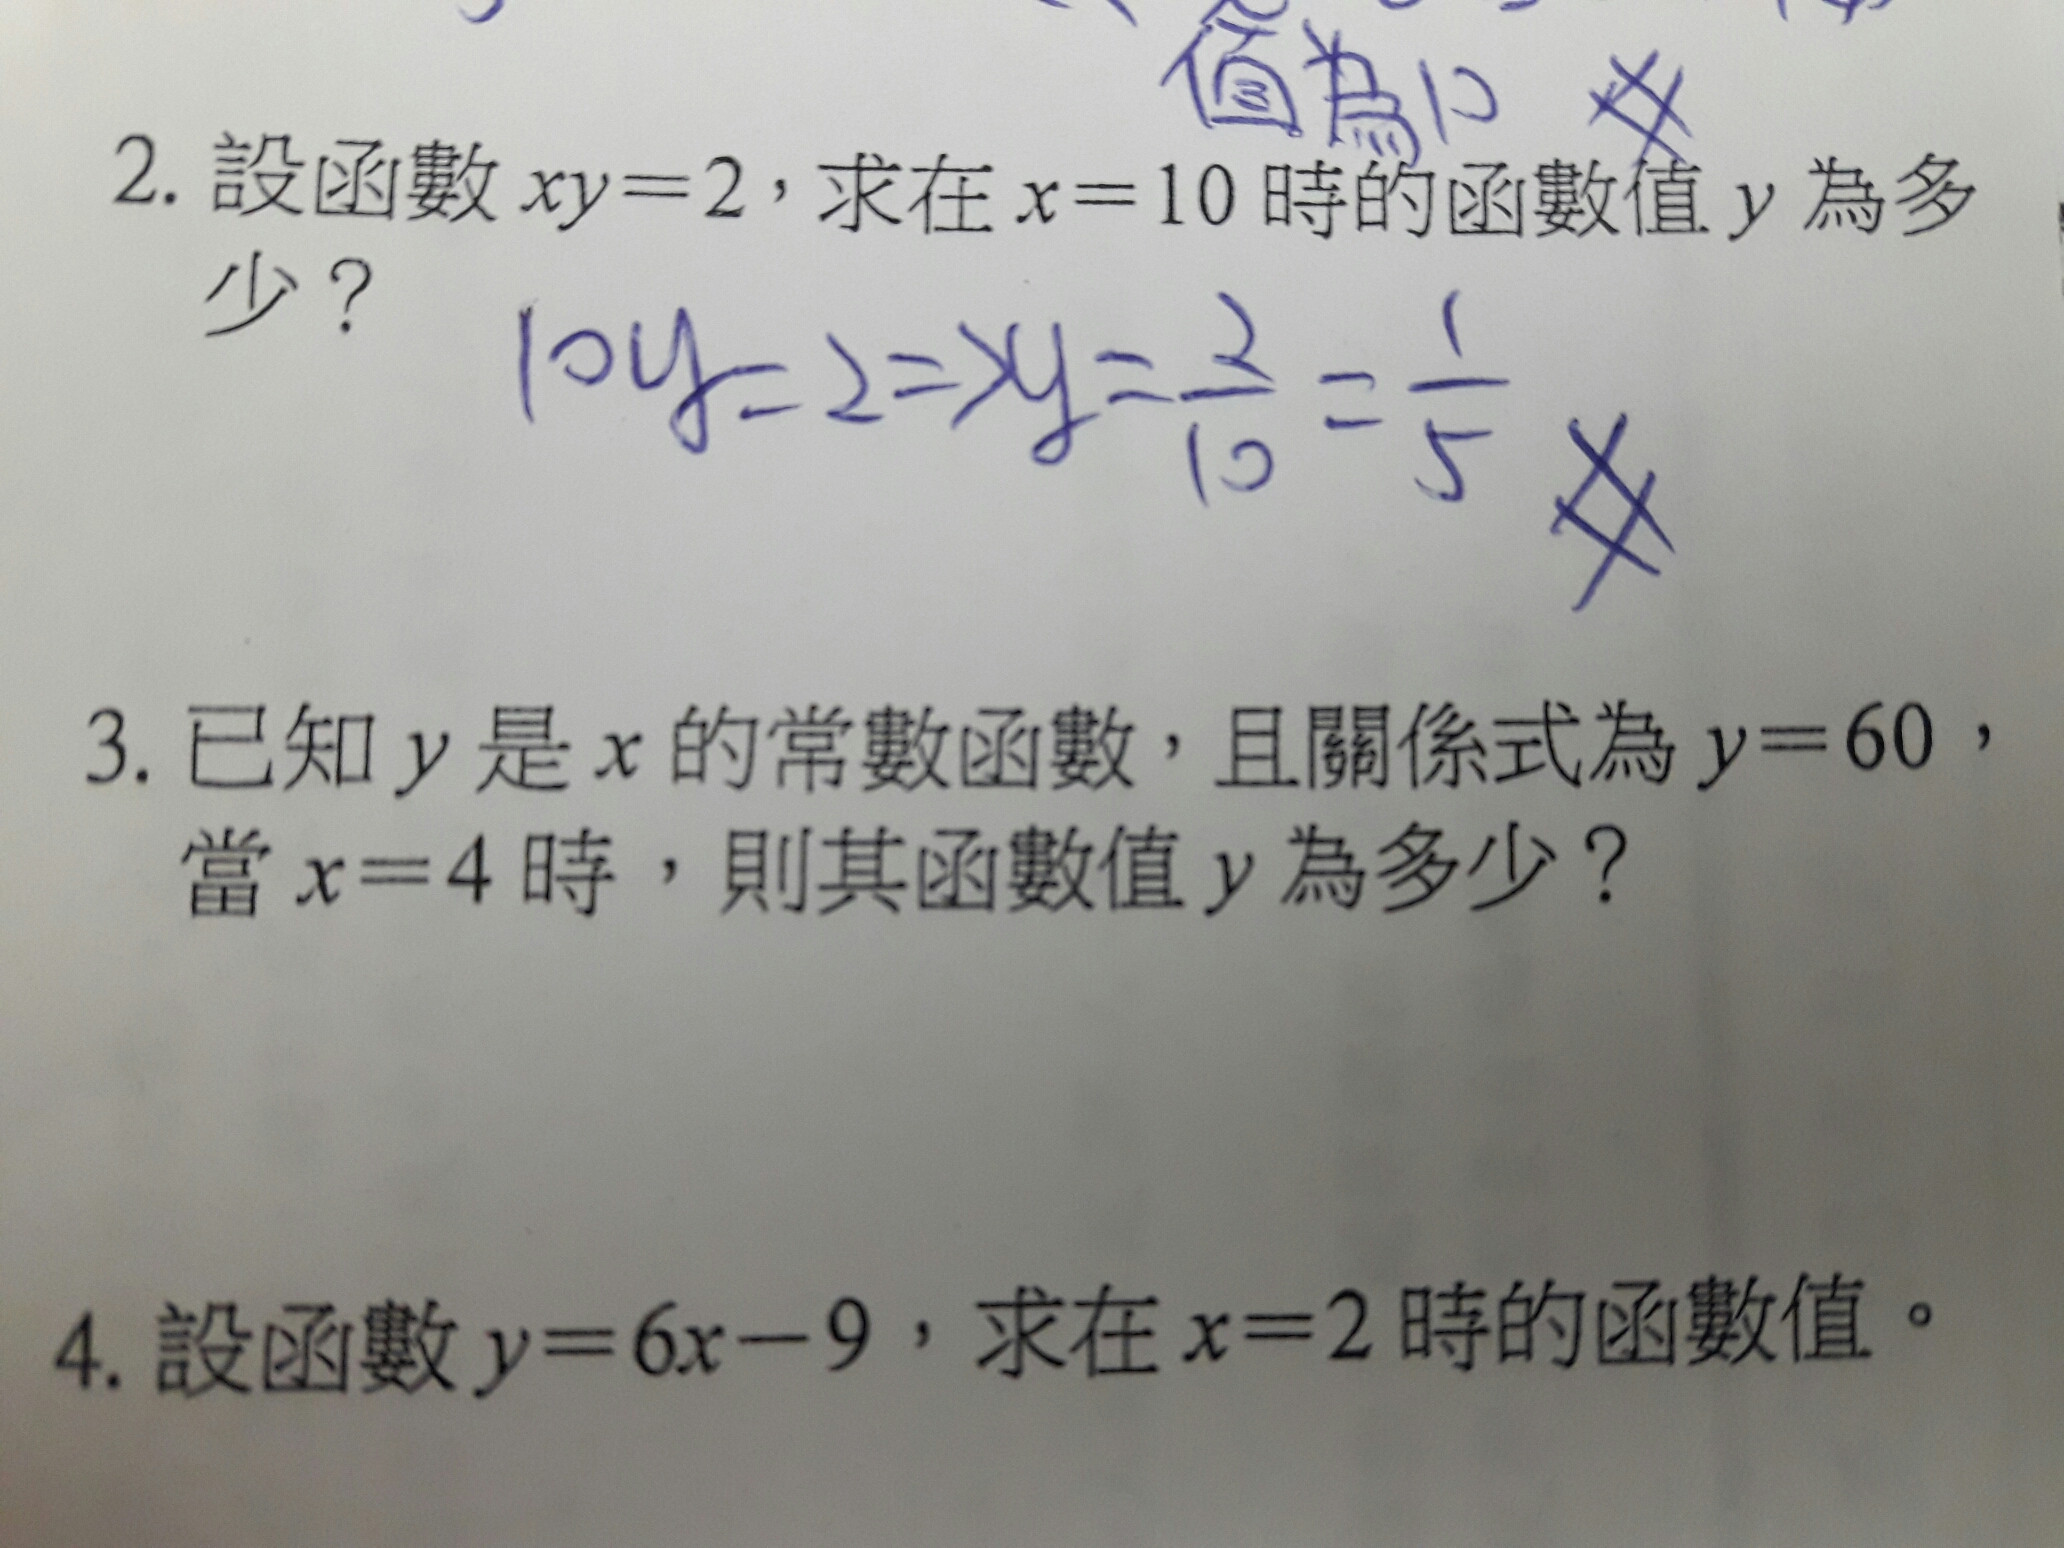 值為10 #
2. 設函數 xy=2，求在 x=10 時的函數值 y 為多
少？
10y=2=>y=2/10=1/5 #
3. 已知 y 是 x 的常數函數，且關係式為 y=60，
當 x=4 時，則其函數值 y 為多少？
4. 設函數 y=6x−9，求在 x=2 時的函數值。